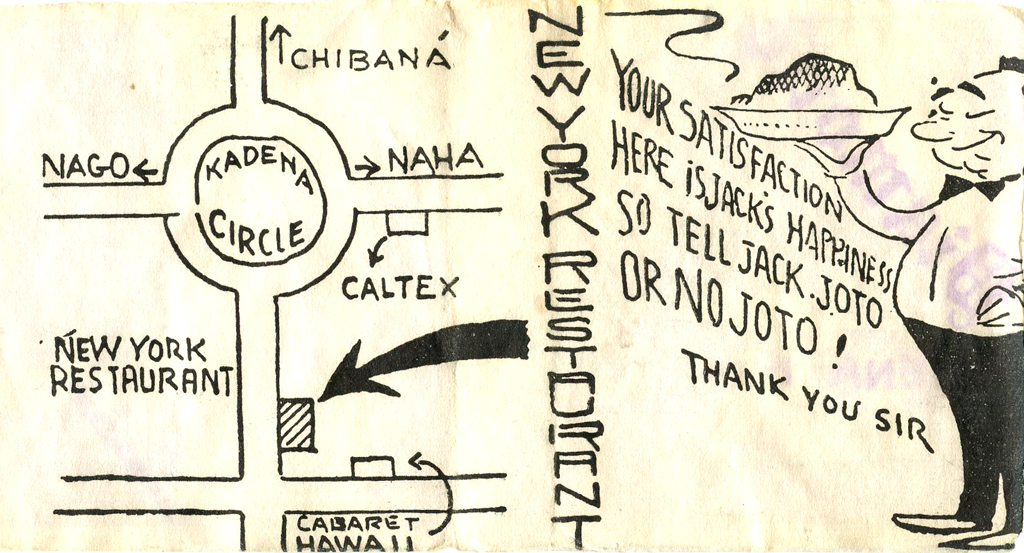 CHIBANÁ
NAGO
NAHA
KADENA
CIRCLE
CALTEX
NEW YORK
RESTAURANT
CABARET
HAWAII
NEW YORK RESTURANT
YOUR SATISFACTION
HERE iS JACK'S HAPPINESS
SO TELL JACK. JOTO
OR NO JOTO!
THANK YOU SIR